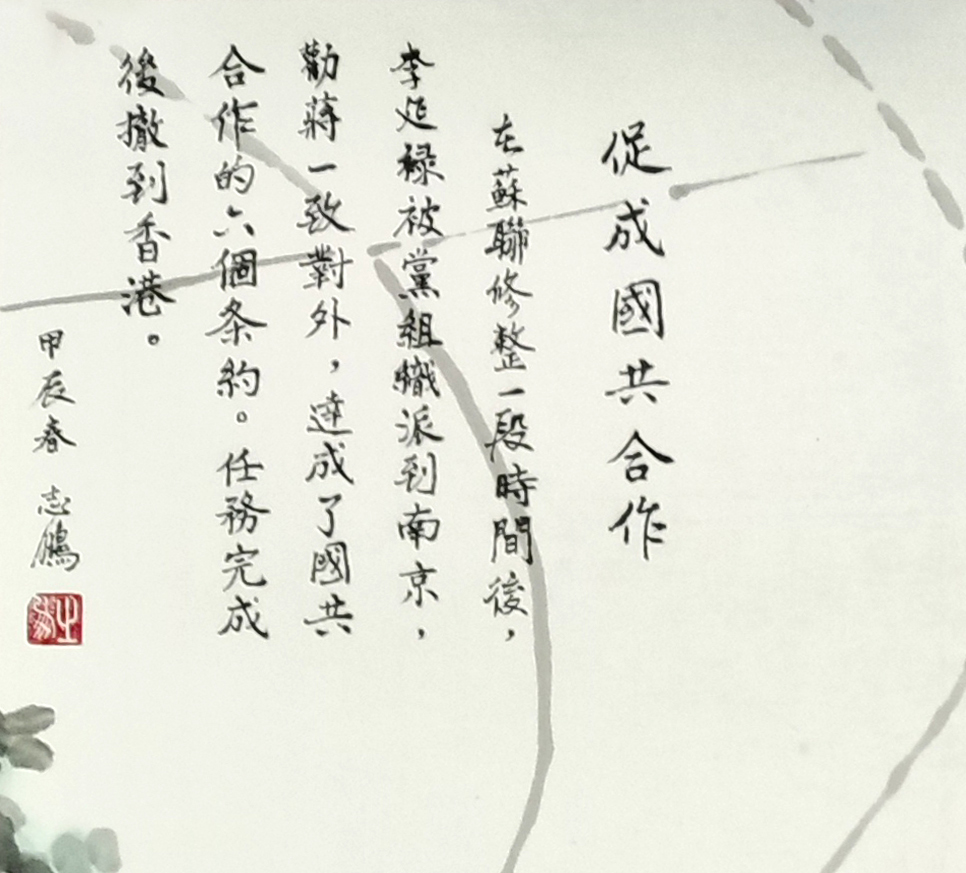 促成國共合作
在蘇聯修整一段時間後，
李延禄被黨組織派到南京，
勸蔣一致對外，達成了國共
合作的六個条約。任務完成
後撤到香港。
甲辰春 志鵬